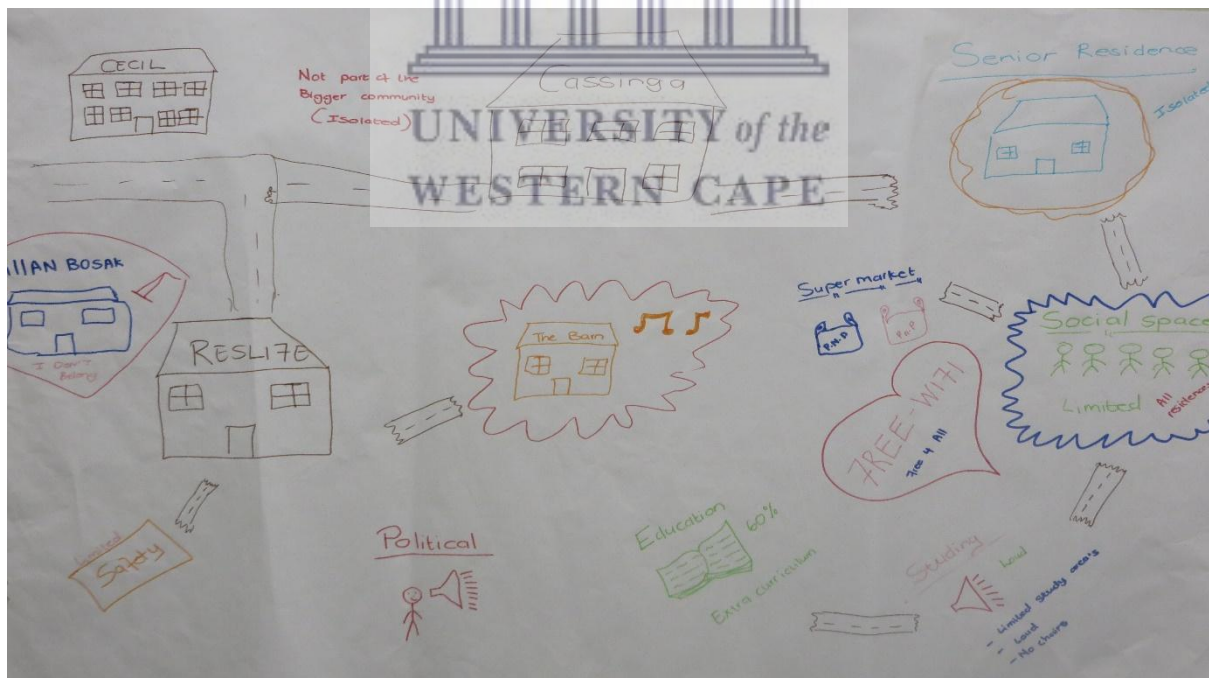 CECIL
Not part of the
Bigger community
(Isolated)
Cassinga
UNIVERSITY of the
WESTERN CAPE
Senior Residence
Isolated
AllAN BOSAK
I Don't
Belong
RESLIFE
The Barn
Super market
P.n.P
P.n.P
FREE-WIFI
Free 4 All
Social space
Limited
All
residence
Limited
Safety
Political
Education
60%
Extra curriculum
Studing
Loud
- Limited study area's
- Loud
- No chairs